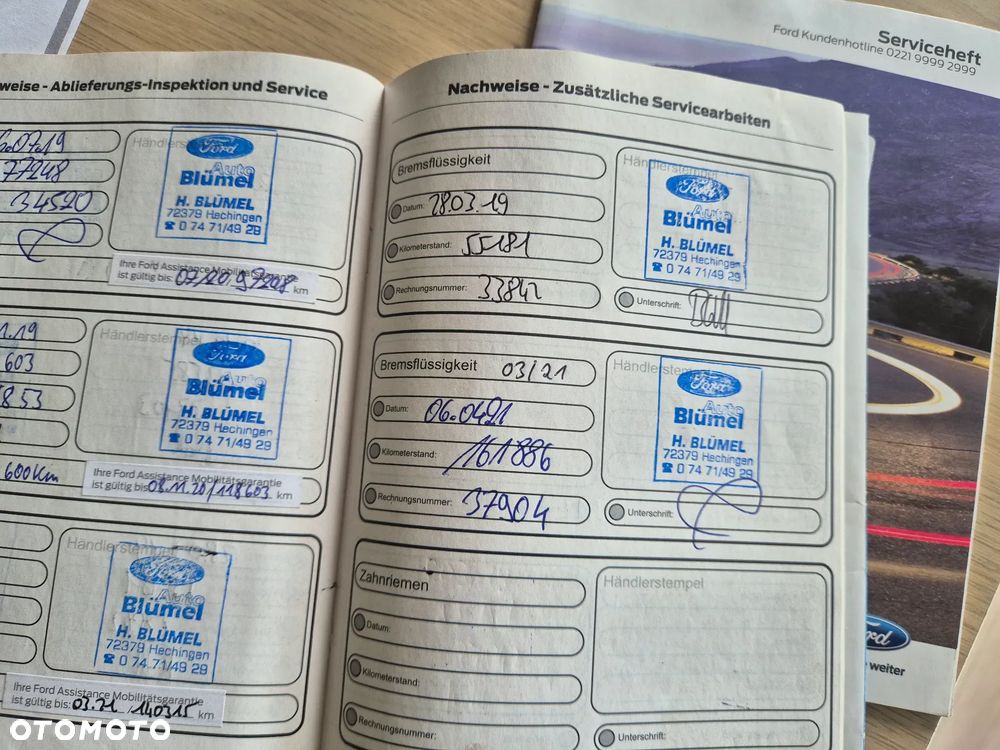 Serviceheft
Ford Kundenhotline 0221 9999 2999
weise - Ablieferungs-Inspektion und Service
77248
34520
Ford
Auto
Blümel
H. BLÜMEL
72379 Hechingen
☎ 0 74 71/49 29
Ihre Ford Assistance Mobilitätsgarantie
ist gültig bis: 07/20 97248 km
1.19
603
853
600km
Händlerstempel
Ford
Auto
Blümel
H. BLÜMEL
72379 Hechingen
☎ 0 74 71/49 29
Ihre Ford Assistance Mobilitätsgarantie
ist gültig bis: 08.11.20/118603 km
Händlerstempel
Ford
Auto
Blümel
H. BLÜMEL
72379 Hechingen
☎ 0 74 71/49 29
Ihre Ford Assistance Mobilitätsgarantie
ist gültig bis: 03.21/140315 km
Nachweise - Zusätzliche Servicearbeiten
Bremsflüssigkeit
Datum: 28.03.19
Kilometerstand: 55181
Rechnungsnummer: 33842
Händlerstempel
Ford
Auto
Blümel
H. BLÜMEL
72379 Hechingen
☎ 0 74 71/49 29
Unterschrift:
Bremsflüssigkeit 03/21
Datum: 06.0421
Kilometerstand: 161886
Rechnungsnummer: 37904
Händlerstempel
Ford
Auto
Blümel
H. BLÜMEL
72379 Hechingen
☎ 0 74 71/49 29
Unterschrift:
Zahnriemen
Datum:
Kilometerstand:
Rechnungsnummer:
Händlerstempel
Unterschrift:
Ford
weiter
OTOMOTO